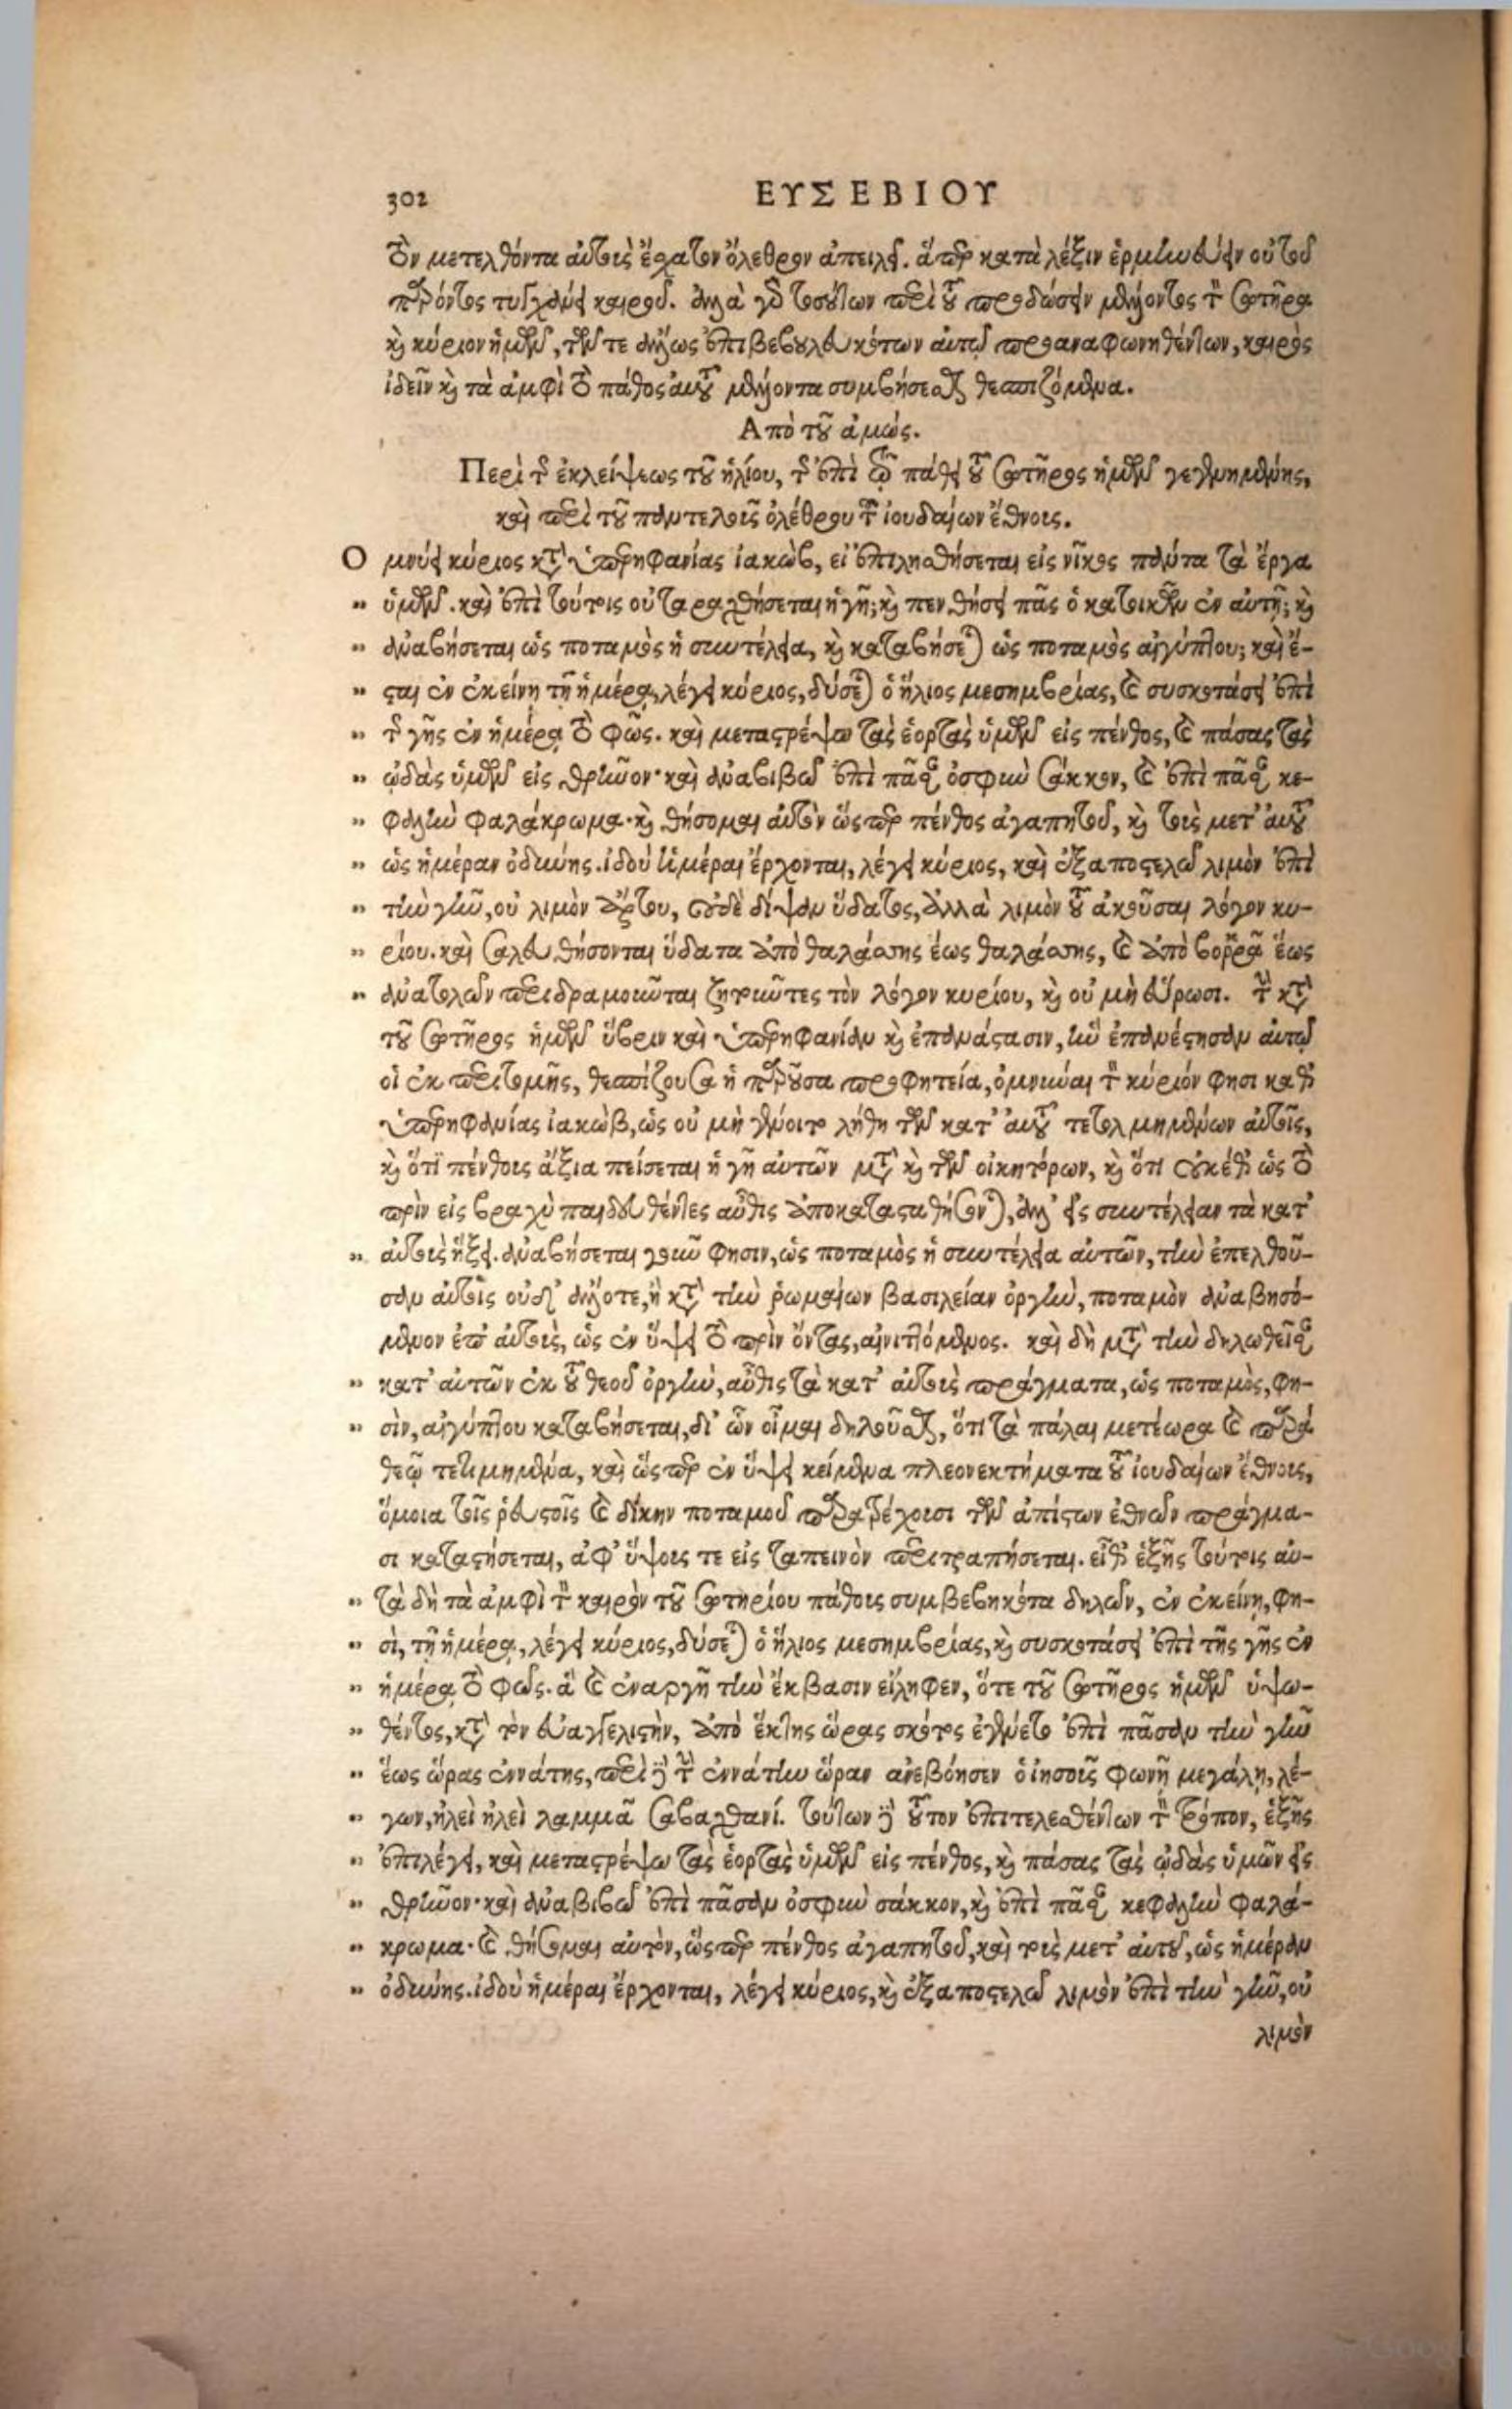 302 ΕΥΣΕΒΙΟΥ
τὸν μετελθόντα αὐτοὺς ἔσχατον ὄλεθρον ἀπειλεῖ. ἅπερ κατὰ λέξιν ἑρμηνεύειν οὐ τοῦ
παρόντος τυγχάνει καιροῦ. ἀλλὰ γὰρ τοσούτων περὶ τοῦ προδώσειν μέλλοντος τὸν σωτῆρα
καὶ κύριον ἡμῶν, τῶν τε ἄλλως ἐπιβεβουλευκότων αὐτῷ προαναφωνηθέντων, καιρὸς
ἰδεῖν καὶ τὰ ἀμφὶ τὸ πάθος αὐτοῦ μέλλοντα συμβήσεσθαι θεσπιζόμενα.
Απὸ τοῦ ἀμώς.
Περὶ τῆς ἐκλείψεως τοῦ ἡλίου, τῆς ἐπὶ τῷ πάθει τοῦ σωτῆρος ἡμῶν γεγενημένης,
καὶ περὶ τοῦ παντελοῦς ὀλέθρου τοῦ ἰουδαίων ἔθνους.
Ο μνύει κύριος κατὰ ὑπερηφανίας ἰακὼβ, εἰ ἐπιλησθήσεται εἰς νῖκος πάντα τὰ ἔργα
" ὑμῶν. καὶ ἐπὶ τούτοις οὐ ταραχθήσεται ἡ γῆ; καὶ πενθήσει πᾶς ὁ κατοικῶν ἐν αὐτῇ; καὶ
" ἀναβήσεται ὡς ποταμὸς ἡ συντέλεια, καὶ καταβήσεται ὡς ποταμὸς αἰγύπτου; καὶ ἔ-
" σται ἐν ἐκείνῃ τῇ ἡμέρᾳ, λέγει κύριος, δύσεται ὁ ἥλιος μεσημβρίας, καὶ συσκοτάσει ἐπὶ
" τῆς γῆς ἐν ἡμέρᾳ τὸ φῶς. καὶ μεταστρέψω τὰς ἑορτὰς ὑμῶν εἰς πένθος, καὶ πάσας τὰς
" ᾠδὰς ὑμῶν εἰς θρῆνον· καὶ ἀναβιβῶ ἐπὶ πᾶσαν ὀσφὺν σάκκον, καὶ ἐπὶ πᾶσαν κε-
" φαλὴν φαλάκρωμα· καὶ θήσομαι αὐτὸν ὥσπερ πένθος ἀγαπητοῦ, καὶ τοὺς μετ' αὐτοῦ
" ὡς ἡμέραν ὀδύνης. ἰδοὺ ἡμέραι ἔρχονται, λέγει κύριος, καὶ ἐξαποστελῶ λιμὸν ἐπὶ
" τὴν γῆν, οὐ λιμὸν ἄρτου, οὐδὲ δίψαν ὕδατος, ἀλλὰ λιμὸν τοῦ ἀκοῦσαι λόγον κυ-
" ρίου. καὶ σαλευθήσονται ὕδατα ἀπὸ θαλάσσης ἕως θαλάσσης, καὶ ἀπὸ βοῤῥᾶ ἕως
" ἀνατολῶν περιδραμοῦνται ζητοῦντες τὸν λόγον κυρίου, καὶ οὐ μὴ εὕρωσι. τὴν κατὰ
τοῦ σωτῆρος ἡμῶν ὕβριν καὶ ὑπερηφανίαν καὶ ἐπανάστασιν, ἣν ἐπανέστησαν αὐτῷ
οἱ ἐκ περιτομῆς, θεσπίζουσα ἡ παροῦσα προφητεία, ὀμνύναι τὸν κύριόν φησι καθ'
ὑπερηφανίας ἰακὼβ, ὡς οὐ μὴ γένοιτο λήθη τῶν κατ' αὐτοῦ τετολμημένων αὐτοῖς,
καὶ ὅτι πένθους ἄξια πείσεται ἡ γῆ αὐτῶν μετὰ καὶ τῶν οἰκητόρων, καὶ ὅτι οὐκέθ' ὡς τὸ
πρὶν εἰς βραχὺ παιδευθέντες αὖθις ἀποκατασταθήσονται, ἀλλ' εἰς συντέλειαν τὰ κατ'
" αὐτοὺς ἥξει. ἀναβήσεται γοῦν φησιν, ὡς ποταμὸς ἡ συντέλεια αὐτῶν, τὴν ἐπελθοῦ-
σαν αὐτοῖς οὐδ' ἄλλοτε, ἢ κατὰ τὴν ῥωμαίων βασιλείαν ὀργὴν, ποταμὸν ἀναβησό-
μενον ἐπ' αὐτοὺς, ὡς ἐν ὕψει τὸ πρὶν ὄντας, αἰνιττόμενος. καὶ δὴ μετὰ τὴν δηλωθεῖσαν
" κατ' αὐτῶν ἐκ τοῦ θεοῦ ὀργὴν, αὖθις τὰ κατ' αὐτοὺς πράγματα, ὡς ποταμὸς, φη-
" σὶν, αἰγύπτου καταβήσεται, δι' ὧν οἶμαι δηλοῦσθαι, ὅτι τὰ πάλαι μετέωρα καὶ παρὰ
θεῷ τετιμημένα, καὶ ὥσπερ ἐν ὕψει κείμενα πλεονεκτήματα τοῦ ἰουδαίων ἔθνους,
ὅμοια τοῖς ῥευστοῖς καὶ δίκην ποταμοῦ παρατρέχουσι τῶν ἀπίστων ἐθνῶν πράγμα-
σι καταστήσεται, ἀφ' ὕψους τε εἰς ταπεινὸν περιτραπήσεται. εἶθ' ἑξῆς τούτοις αὐ-
" τὰ δὴ τὰ ἀμφὶ τὸν καιρὸν τοῦ σωτηρίου πάθους συμβεβηκότα δηλῶν, ἐν ἐκείνῃ, φη-
" σὶ, τῇ ἡμέρᾳ, λέγει κύριος, δύσεται ὁ ἥλιος μεσημβρίας, καὶ συσκοτάσει ἐπὶ τῆς γῆς ἐν
" ἡμέρᾳ τὸ φῶς. ἃ καὶ ἐναργῆ τὴν ἔκβασιν εἴληφεν, ὅτε τοῦ σωτῆρος ἡμῶν ὑψω-
" θέντος, κατὰ τὸν εὐαγγελιστὴν, ἀπὸ ἕκτης ὥρας σκότος ἐγένετο ἐπὶ πᾶσαν τὴν γῆν
" ἕως ὥρας ἐννάτης, περὶ δὲ τὴν ἐννάτην ὥραν ἀνεβόησεν ὁ ἰησοῦς φωνῇ μεγάλῃ, λέ-
" γων, ἠλεὶ ἠλεὶ λαμμᾶ σαβαχθανί. τούτων δὲ τοῦτον ἐπιτελεσθέντων τὸν τρόπον, ἑξῆς
" ἐπιλέγει, καὶ μεταστρέψω τὰς ἑορτὰς ὑμῶν εἰς πένθος, καὶ πάσας τὰς ᾠδὰς ὑμῶν εἰς
" θρῆνον· καὶ ἀναβιβῶ ἐπὶ πᾶσαν ὀσφὺν σάκκον, καὶ ἐπὶ πᾶσαν κεφαλὴν φαλά-
" κρωμα· καὶ θήσομαι αὐτὸν, ὥσπερ πένθος ἀγαπητοῦ, καὶ τοὺς μετ' αὐτοῦ, ὡς ἡμέραν
" ὀδύνης. ἰδοὺ ἡμέραι ἔρχονται, λέγει κύριος, καὶ ἐξαποστελῶ λιμὸν ἐπὶ τὴν γῆν, οὐ
λιμὸν